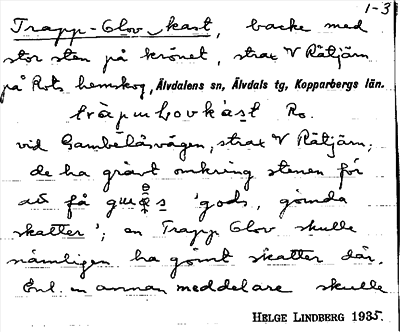 1-3
Trapp-Olov kast, backe med
stor sten på krönet, strax V Råtjärn
på Rots hemskog, Älvdalens sn, Älvdals tg, Kopparbergs län.
Ro.
vid Gambelåsvägen, strax V Råtjärn;
de ha grävt omkring stenen för
att få 'gods, gömda
skatter'; en Trapp Olov skulle
nämligen ha gömt skatter där.
Enl. en annan meddelare skulle
HELGE LINDBERG 1935.